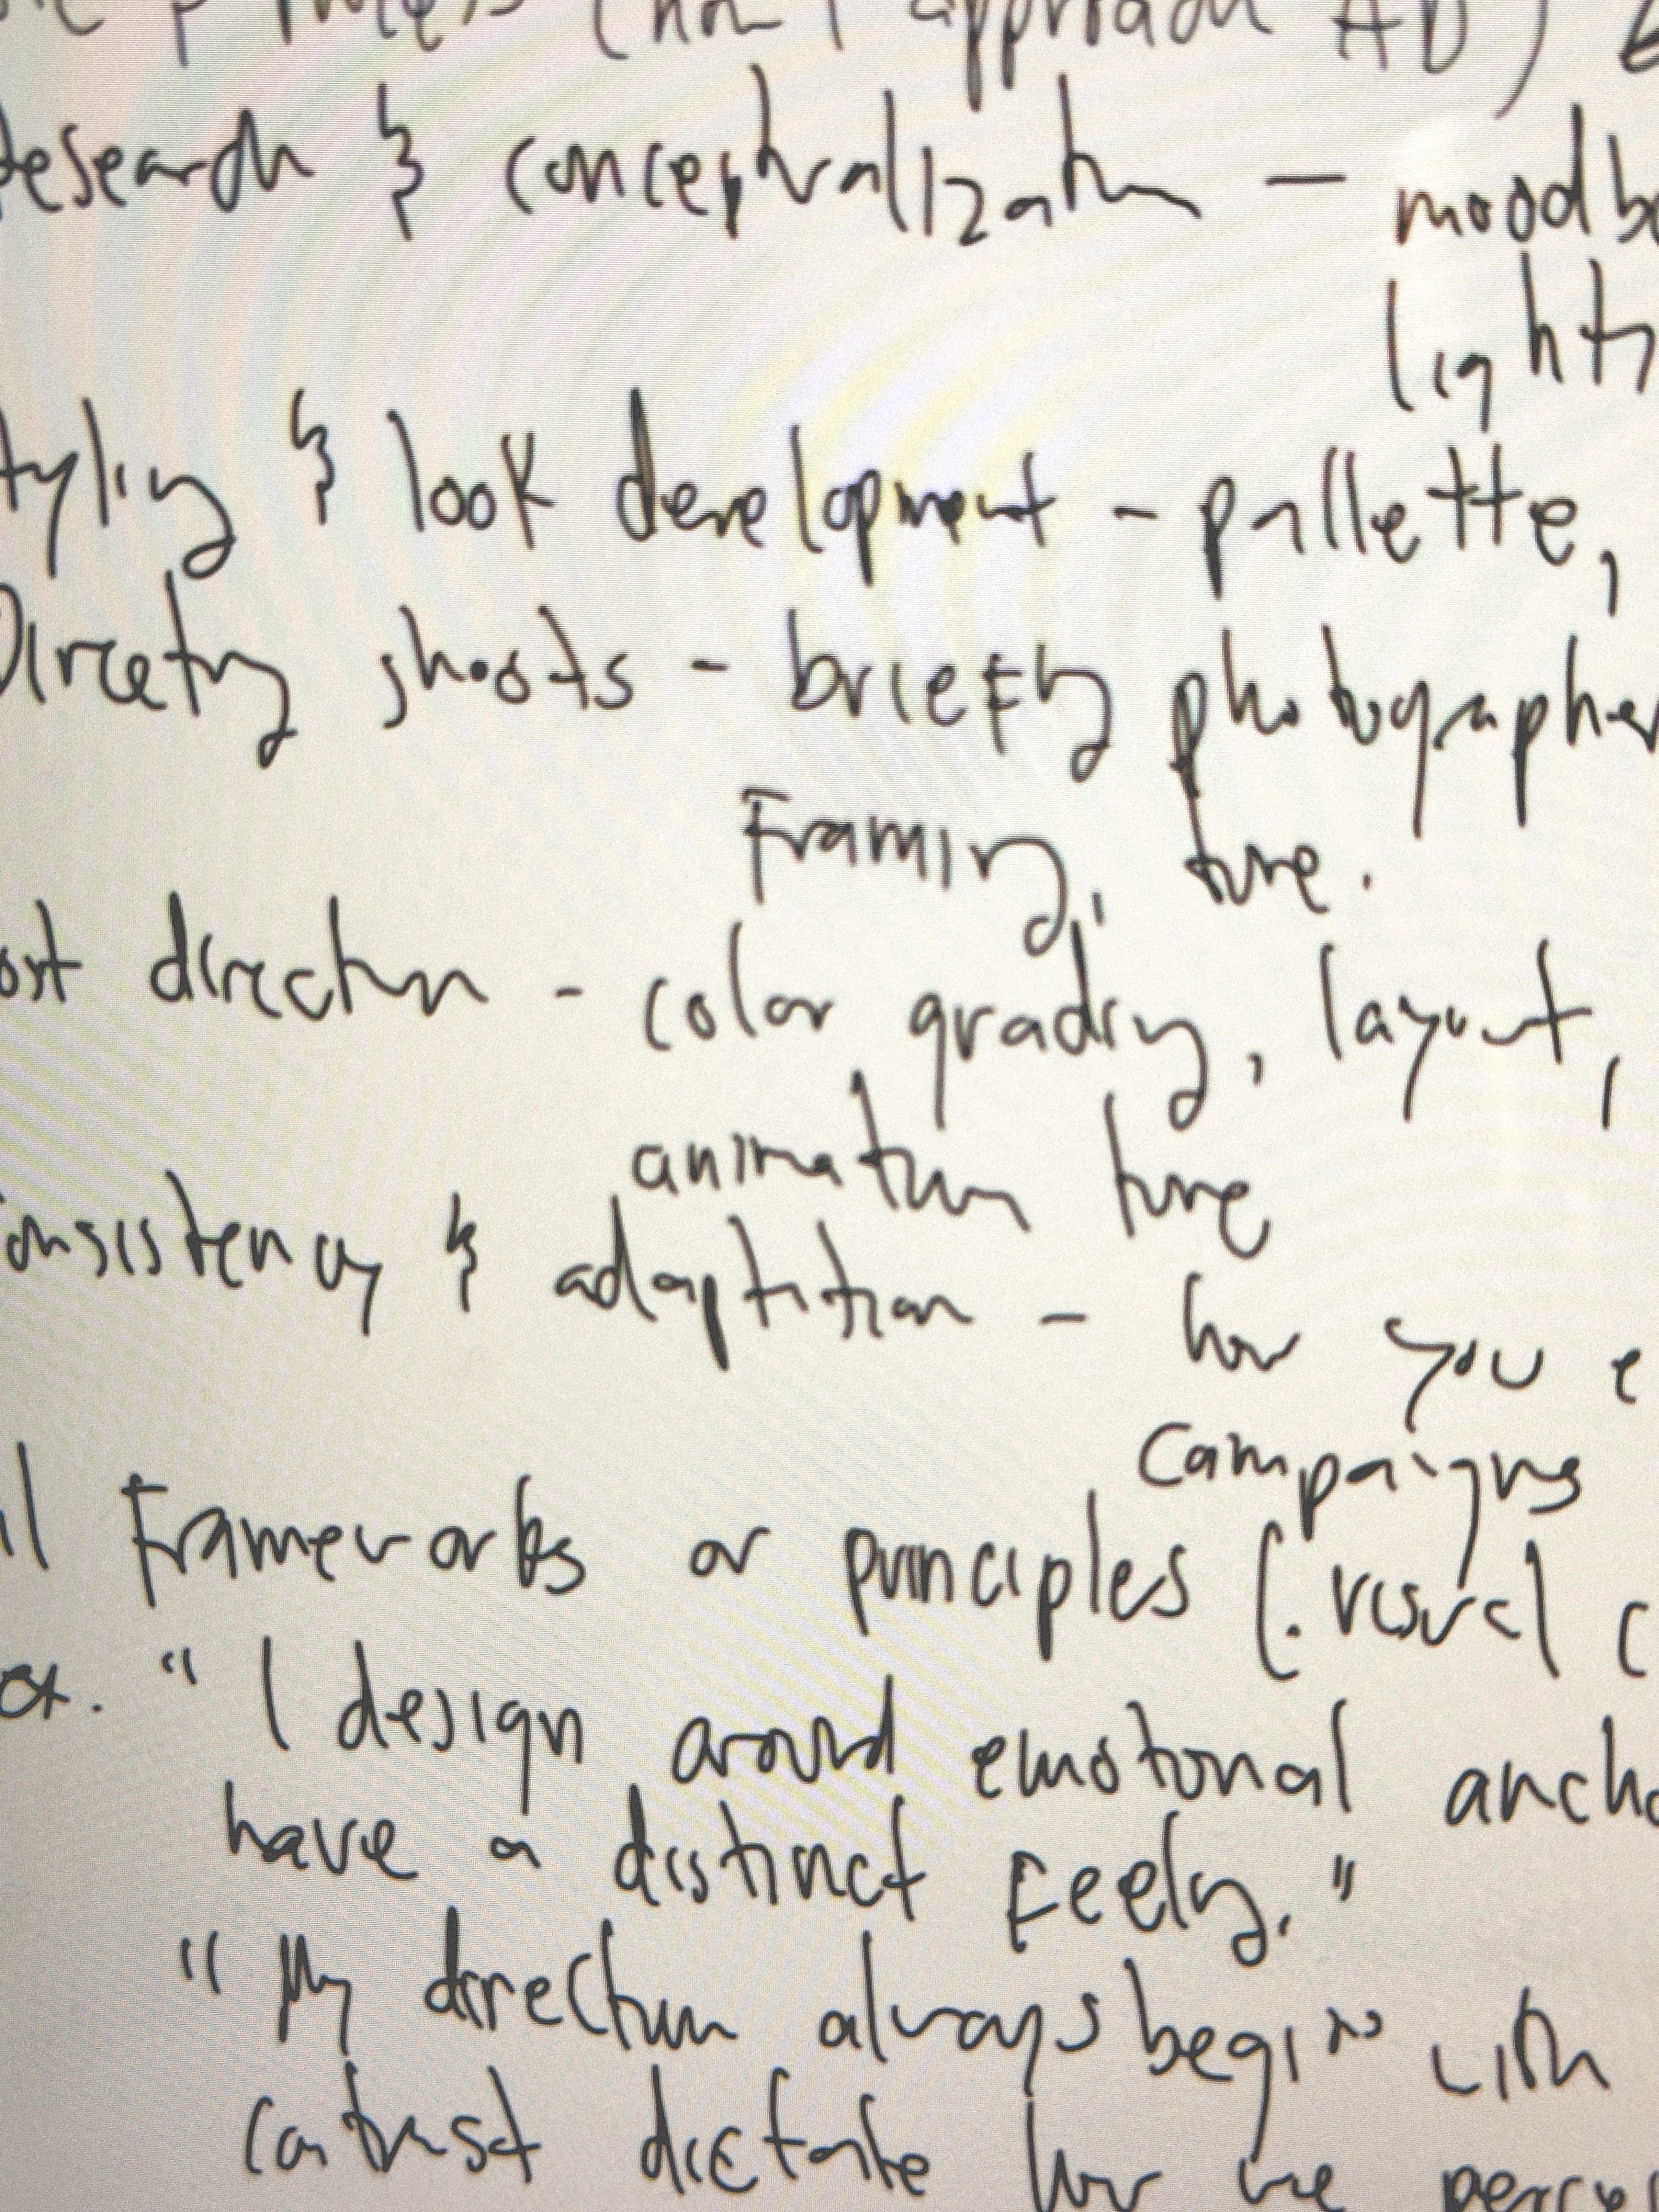 (how I approach AD)
Research & conceptualization - moodbo
light
Styling & look development - pallette,
Directing shoots - briefing photographer
Framing, tone.
ost direction - color grading, layout,
animation tone
onsistency & adaptition - how you e
campaigns
il Frameworks or principles (. visual c
ex. "I design around emotional ancho
have a distinct Feeling."
"My direction always begins with
contrast dictate how we perce